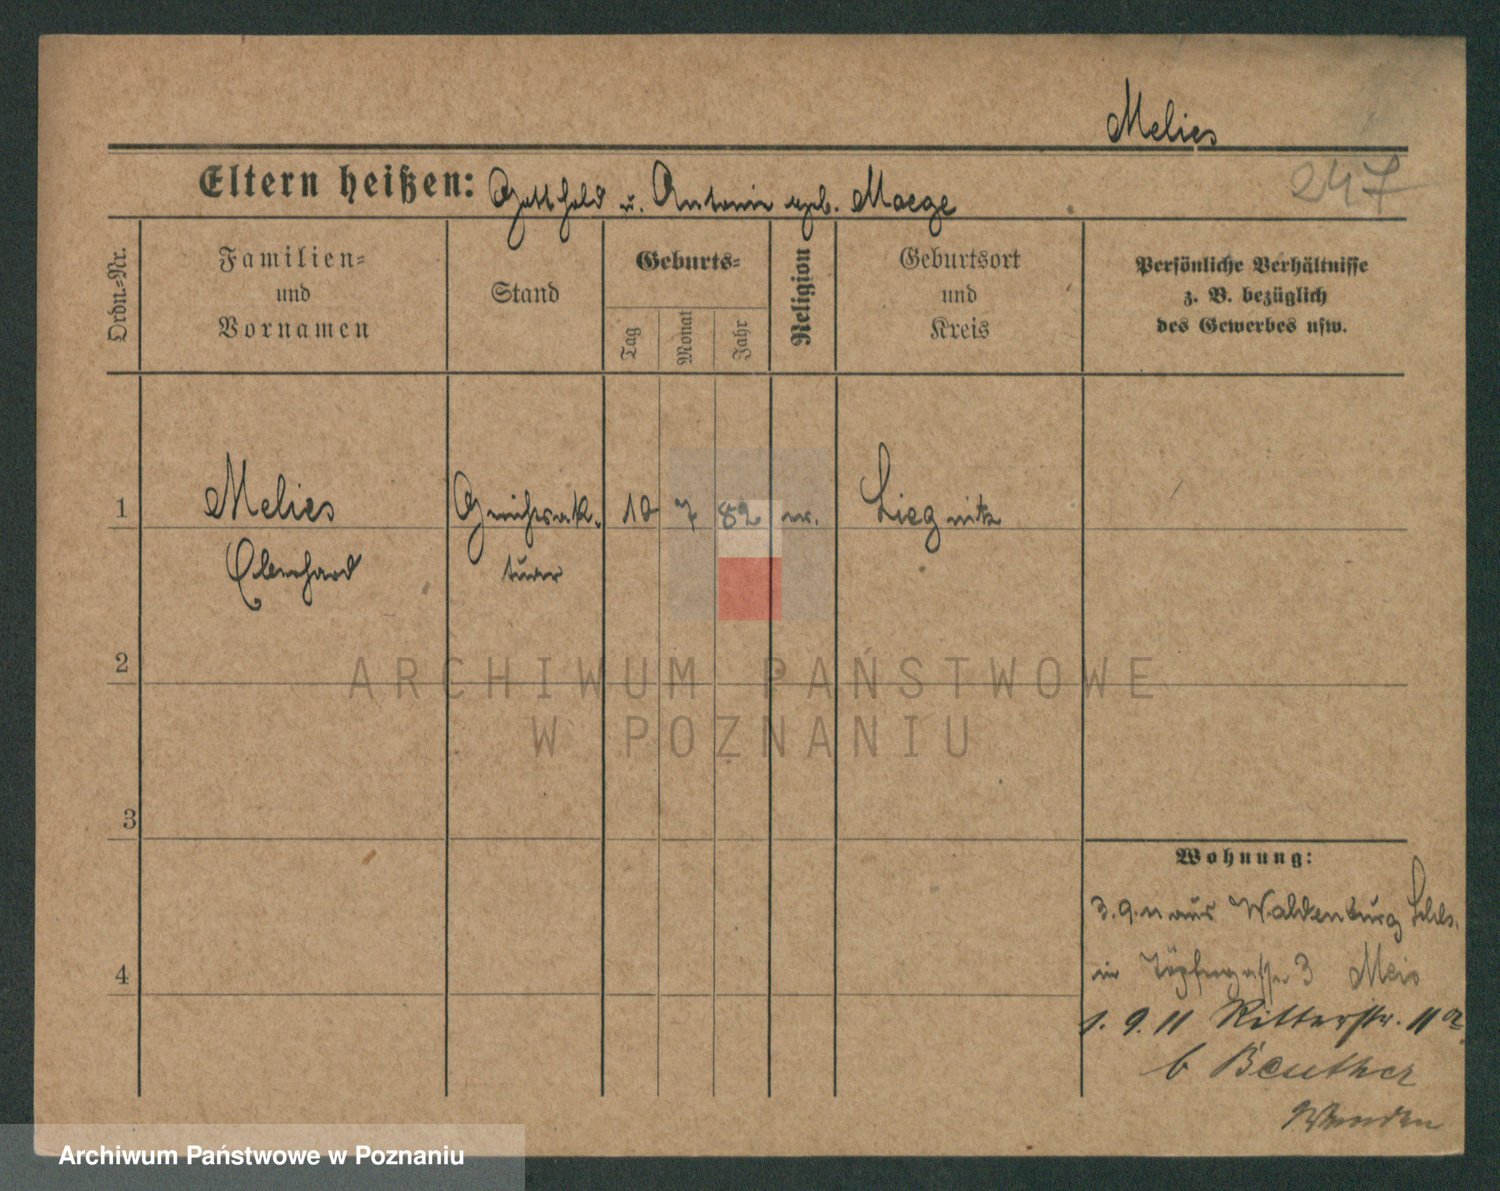 Melies
247
Eltern heißen: Gotthold u. Antonie geb. Maege
Ordn.-Nr.
Familien-
und
Vornamen
Stand
Geburts-
Tag
Monat
Jahr
Religion
Geburtsort
und
Kreis
Persönliche Verhältnisse
z. B. bezüglich
des Gewerbes usw.
1 Melies Gerichtsak. 10 7 82 ev. Liegnitz
Eberhard tuar
2
3
4
Wohnung:
3.9.11 aus Waldenburg Schls.
in Töpfergasse 3
1.9.11 Ritterstr. 11a
b Beuther
ARCHIWUM PAŃSTWOWE
W POZNANIU
Archiwum Państwowe w Poznaniu